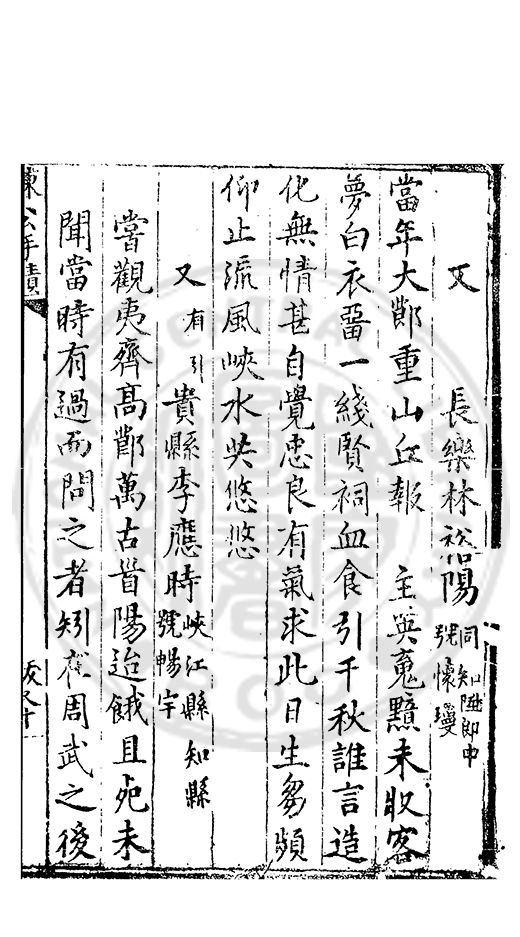 又　長樂林裕陽同知陞郎中號懷瓊
當年大鄣重山丘報　主英䰟黯未收客
夢白衣畱一綫賢祠血食引千秋誰言造
化無情甚自覺忠良有氣求此日生芻頻
仰止流風峽水共悠悠
又有引　貴縣李應時峽江縣知縣號暢宇
嘗觀夷齊高鄣萬古首陽迨餓且死未
聞當時有過而問之者矧在周武之後